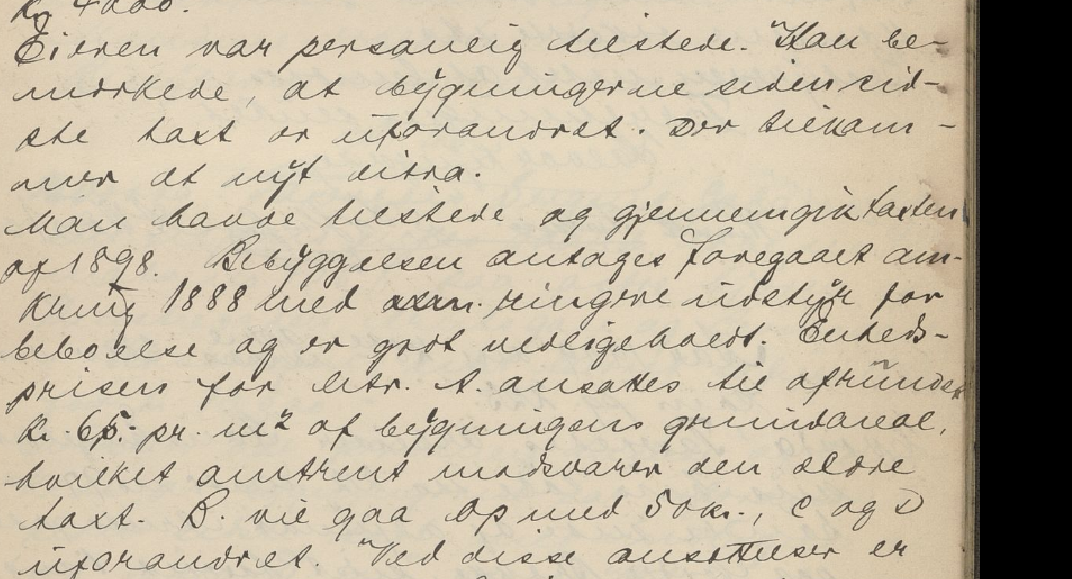 Kr. 4200.
Eieren var personlig tilstede. Han be-
mærkede, at bygningerne siden sid-
ste taxt er uforandret. Der tilkom-
mer et nyt
Man havde tilstede og gjennemgik taxten
af 1898. Bebyggelsen antages foregaaet om-
kring 1888 med alm. ringere udstyr for
beboelse og er godt vedligeholdt. Enheds-
prisen for litr. A. ansattes til afrundet
Kr. 65.- pr. m² af bygningens grundareal,
hvilket omtrent modsvarer den ældre
taxt. B. vil gaa op med 50 kr., C og D
uforandret. Ved disse ansættelser er